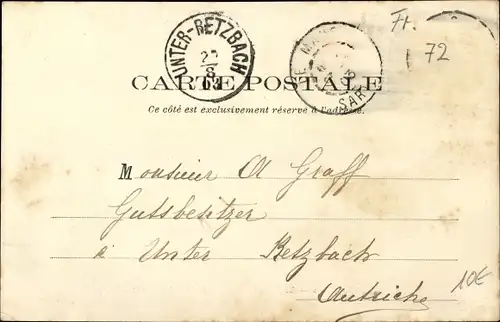 Fr.
72
UNTER-RETZBACH
22
8
03
SAR
CARTE POSTALE
Ce côté est exclusivement réservé à l'adresse.
Monsieur A Graff
Gutsbesitzer
à Unter Retzbach
Autriche
10€